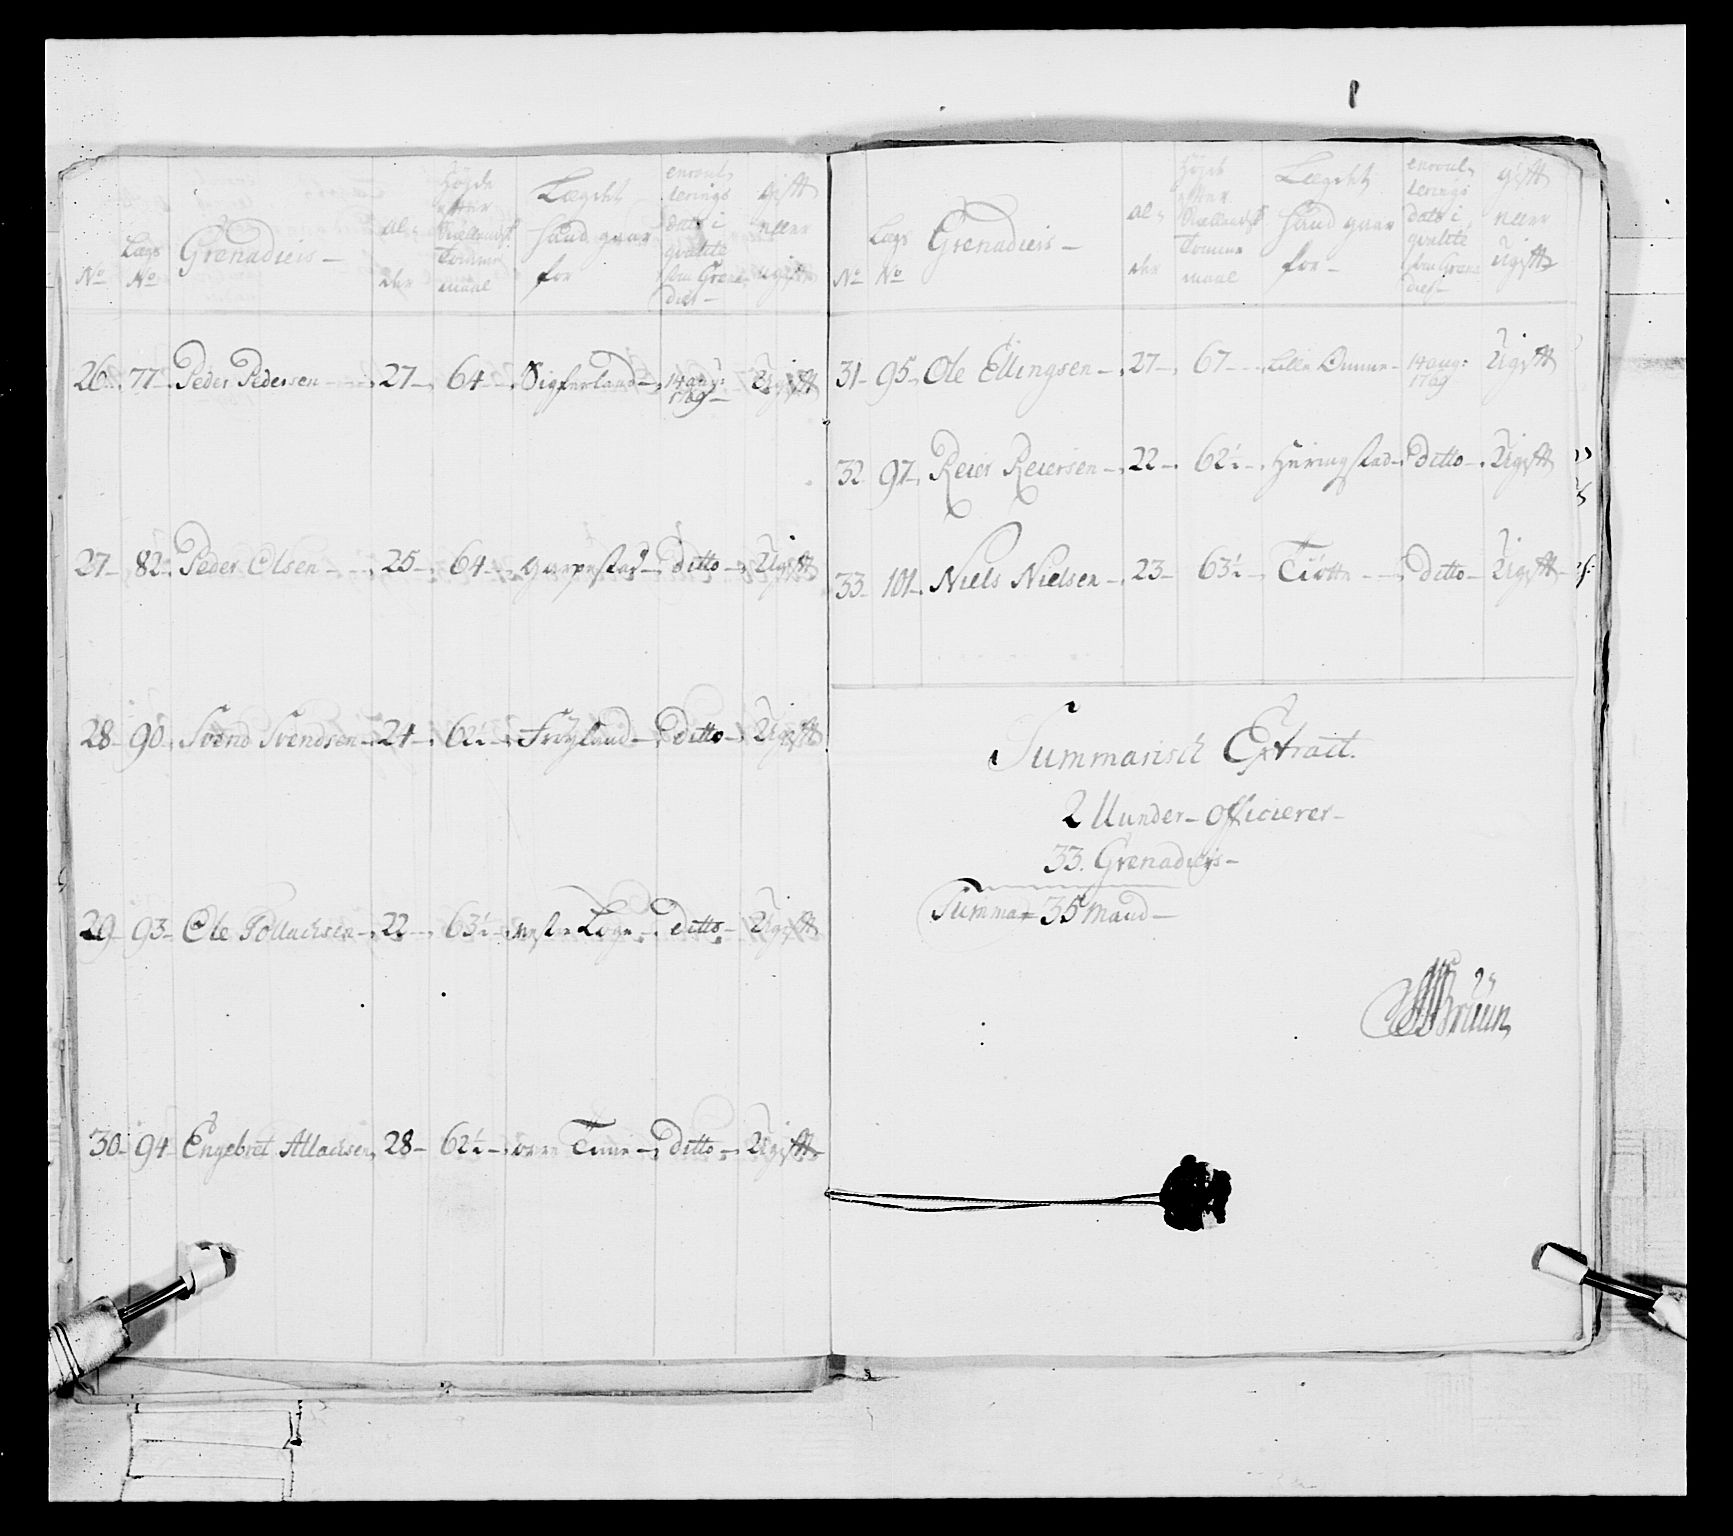 No Lægs No Grenadieis Al- der Høyde efter Siællandsk Tomme maal Lægdet Hand gaar for enroul- lerings dato i qvalité som Grena- dier gift eller ugift
26 77 Peder Pedersen 27 64 Sigferland 14 aug: 1769 Ugift
27 82 Peder Olsen 25 64 Garpestad ditto Ugift
28 90 Svend Svendsen 24 62½ Frøyland ditto Ugift
29 93 Ole Tollachsen 22 63½ vestre Loge ditto Ugift
30 94 Engebret Atlachsen 28 62½ Time ditto Ugift
No Lægs No Grenadieis Al- der Høyde efter Siællandsk Tomme maal Lægdet Hand gaar for enroul- lerings dato i qvalité som Grena- dier gift eller Ugift
31 95 Ole Ellingsen 27 67 Lille 14 aug: 1769 Ugift
32 97 Reier Reiersen 22 62½ Haringstad ditto Ugift
33 101 Niels Nielsen 23 63½ Tiøtte ditto Ugift
Summarisch Extract.
2 Uunder-Officierer
33. Grenadiers
Summa 35 Mand
Bruun